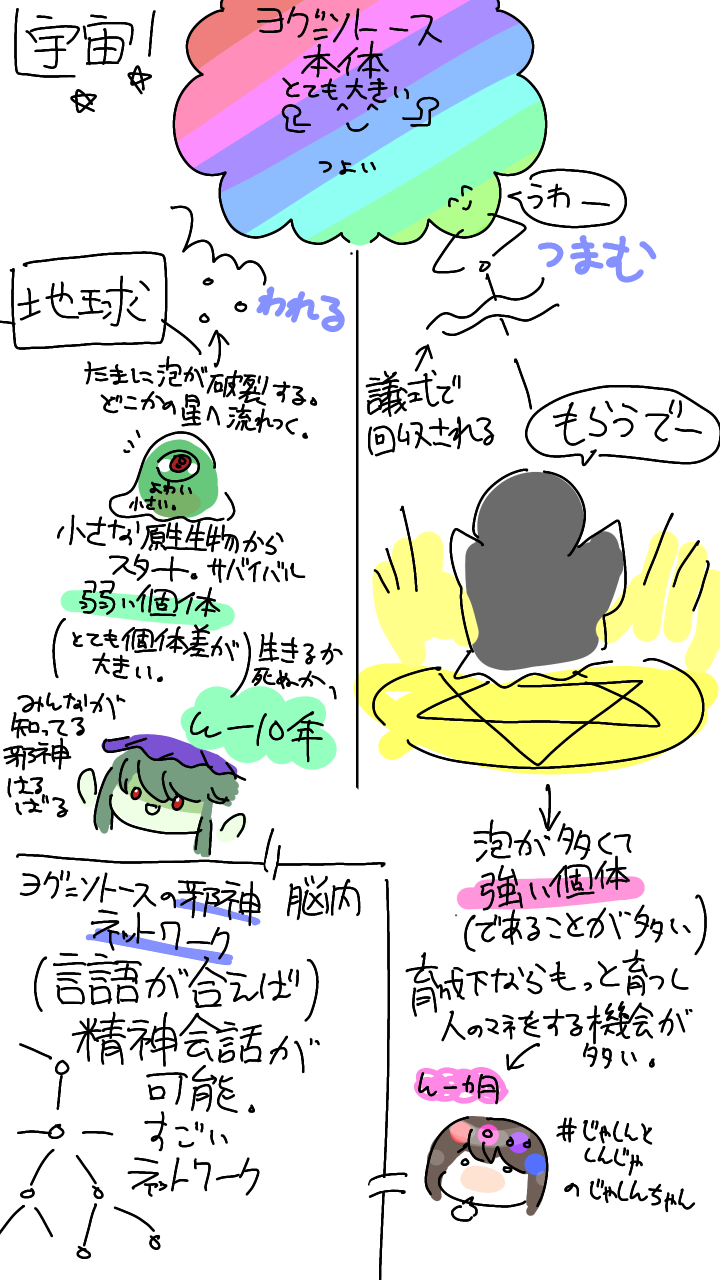 宇宙
ヨグ=ソトース
本体
とても大きい
つよい
うわー
つまむ
地球
われる
たまに泡が破裂する。
どこかの星へ流れつく。
よわい
小さい。
小さな原生生物から
スタート。サバイバル
弱い個体
(とても個体差が
大きい。)
生きるか
死ぬか、
ん一10年
みんなが
知ってる
邪神
はる
ばる
儀式で
回収される
もらうでー
泡が多くて
強い個体
(であることが多い)
育成下ならもっと育つし
人のマネをする機会が
多い。
ん一カ月
#じゃしんと
しんじゃ
のじゃしんちゃん
ヨグ=ソトースの邪神 脳内
ネットワーク
(言語が合えば)
精神会話が
可能。
すごい
ネットワーク